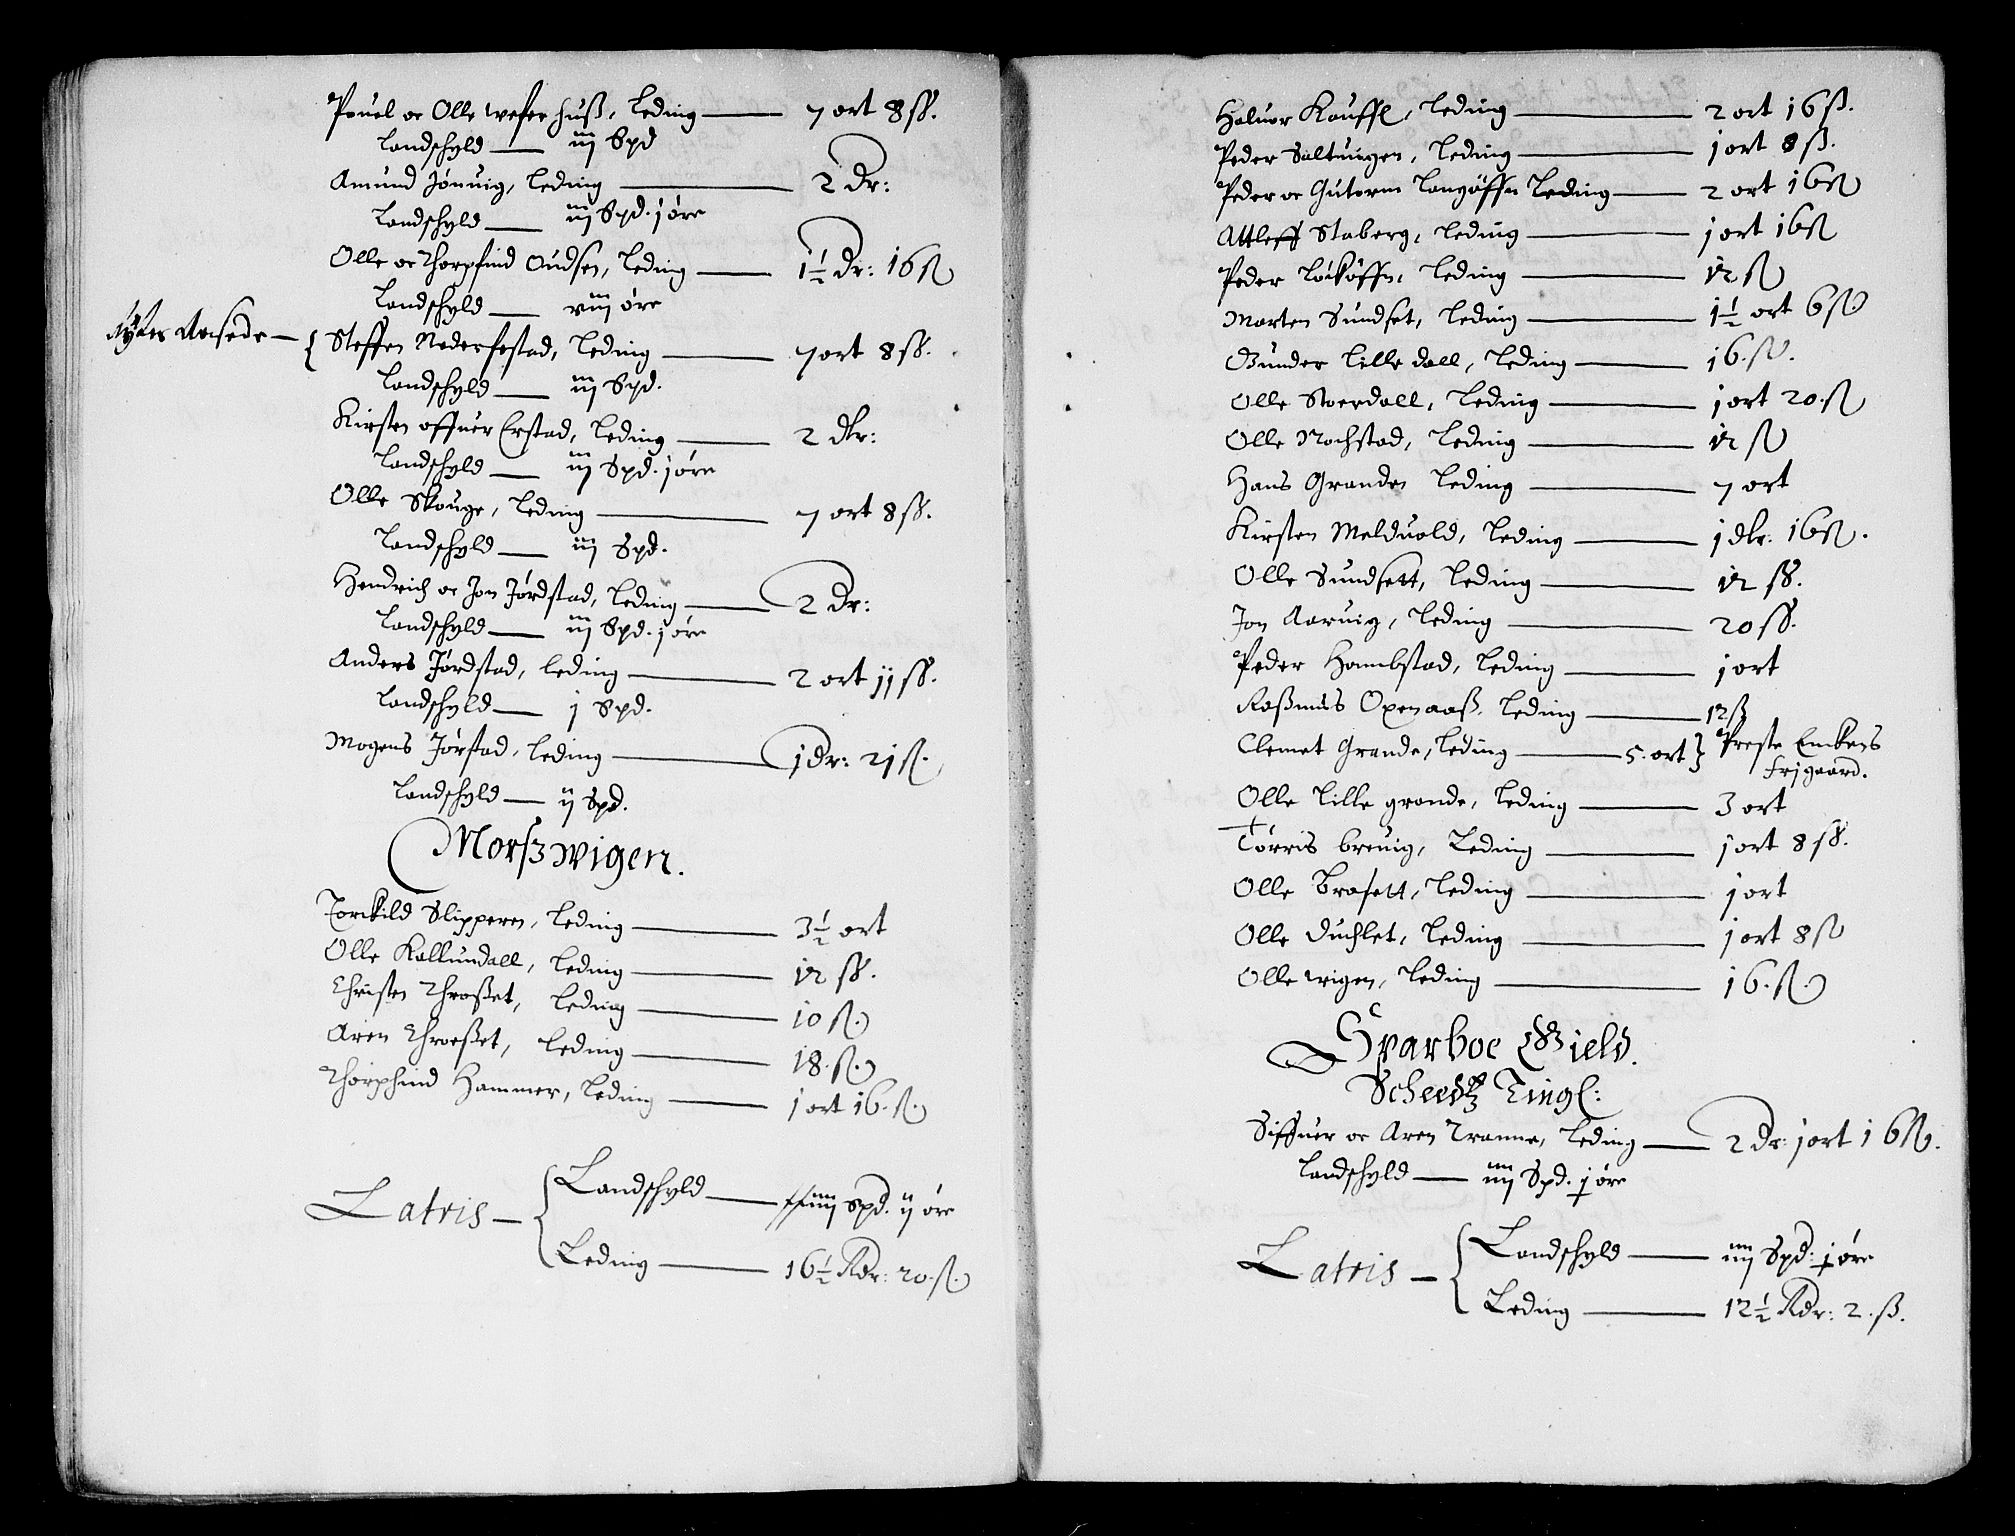 Pouel oc Olle wester huß, Leding — 7 ort 8 ß.
Landschyld — iij Spd
Amund Jønuig, Leding — 2 Dr:
Landschyld — iiij Spd. j øre
Olle oc Thorpfind Oudsen, Leding — 1½ Dr: 16 ß
Landschyld — viij øre
Steffen Nederfestad, Leding — 7 ort 8 ß.
Landschyld — iij Spd.
Kirsten offuer Erstad, Leding — 2 dlr:
Landschyld — iij Spd. j øre
Olle Skouge, Leding — 7 ort 8 ß.
Landschyld — iij Spd.
Hendrich oc Jon Jørdstad, Leding — 2 Dr:
Landschyld — iij Spd. j øre
Anders Jørdstad, Leding — 2 ort 11 ß.
Landschyld — j Spd.
Mogens Jørstad, Leding — 1 dr: 21 ß.
Landschyld — ij Spd.
Morsz wigen.
Torckild Slipperen, Leding — 3½ ort
Olle Kallundall, Leding — 12 ß.
Christen Throßet, Leding — 10 ß.
Aren Throeßet, Leding — 18. ß.
Thorphind Hammer, Leding — 1 ort 16. ß.
Latris — { Landschyld — Spd. ij øre
Leding — 16½ Rdr: 20. ß.
Haluor Kauffl, Leding — 2 ort 16 ß.
Peder Saltuigen, Leding — 1 ort 8 ß.
Peder oc Gutorm Langøffn Leding — 2 ort 16 ß
Attleff Staberg, Leding — 1 ort 16 ß
Peder Løckøffn, Leding — 12 ß
Morten Sundset, Leding — 1½ ort 6 ß
Gunder Lille dall, Leding — 16. ß.
Olle Stoerdall, Leding — 1 ort 20. ß
Olle Rochstad, Leding — 12 ß
Hans Granden Leding — 7 ort
Kirsten Melduold, Leding — 1 dlr: 16 ß.
Olle Sundsett, Leding — 12 ß.
Jon Aaruig, Leding — 20 ß.
Peder Hambstad, Leding — 1 ort
Raßmus Oxenaaß, Leding — 12 ß
Clemet Grande, Leding — 5. ort } Preste Enckens
frjgaard.
Olle Lille grande, Leding — 3 ort
Tørris breuig, Leding — 1 ort 8 ß.
Olle Brasett, Leding — 1 ort
Olle Duchlet, Leding — 1 ort 8 ß
Olle wigen, Leding — 16. ß.
Sparboe Gield.
Scheedtz Tingl:
Siffuer oc Aren Tranne, Leding — 2 Dr: 1 ort 16 ß.
Landschyld — iiij Spd. j øre
Latris — { Landschyld — iiij Spd: j øre
Leding — 12½ Rdr: 2. ß.